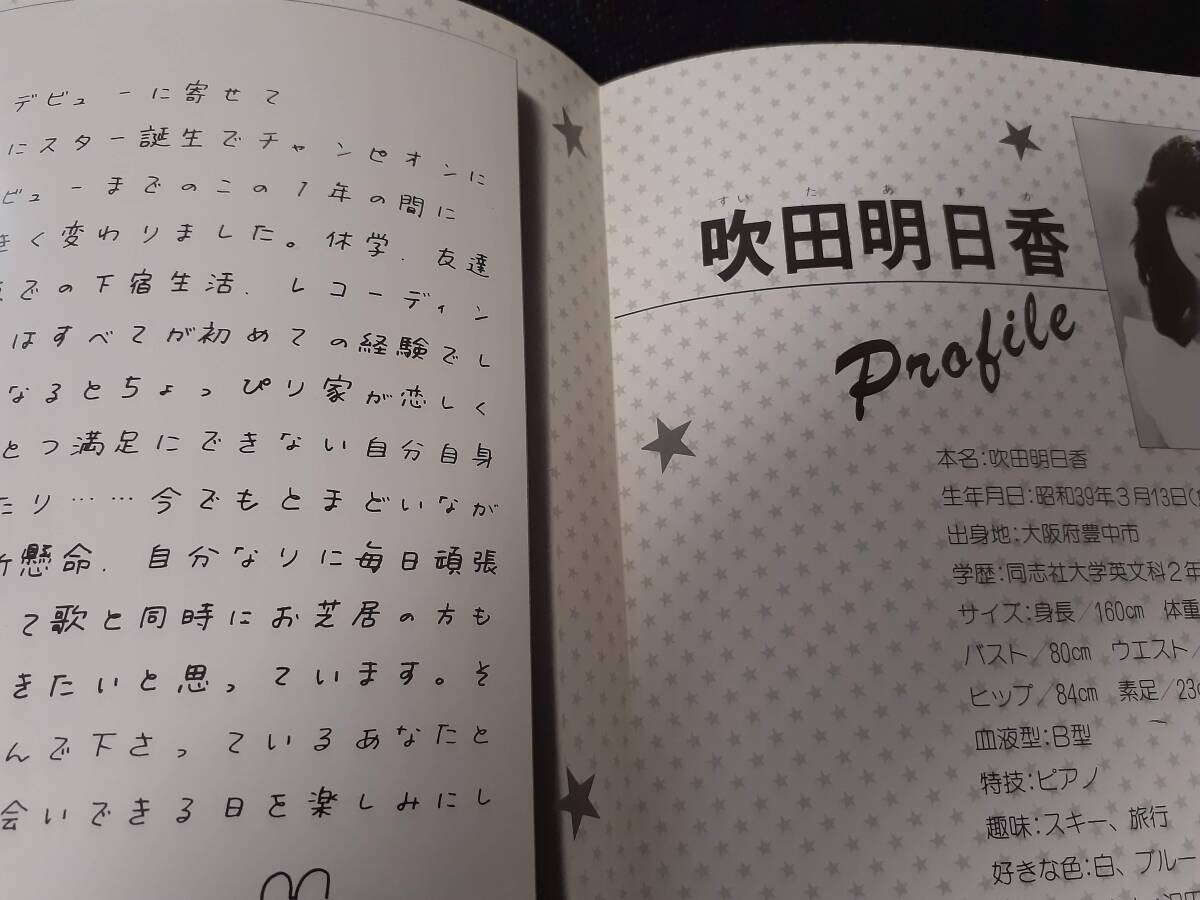 デビューに寄せて
にスター誕生でチャンピオンに
ビューまでのこの1年の間に
きく変わりました。休学、友達
での下宿生活、レコーディン
はすべてが初めての経験でし
なるとちょっぴり家が恋しく
とつ満足にできない自分自身
たり……今でもとまどいなが
懸命、自分なりに毎日頑張
て歌と同時にお芝居の方も
きたいと思っています。そ
んで下さっているあなたと
会いできる日を楽しみにし
すいたあすか
吹田明日香
Profile
本名:吹田明日香
生年月日:昭和39年3月13日(
出身地:大阪府豊中市
学歴:同志社大学英文科2年
サイズ:身長/160cm 体重
バスト/80cm ウエスト/
ヒップ/84cm 素足/23c
血液型:B型
特技:ピアノ
趣味:スキー、旅行
好きな色:白、ブルー